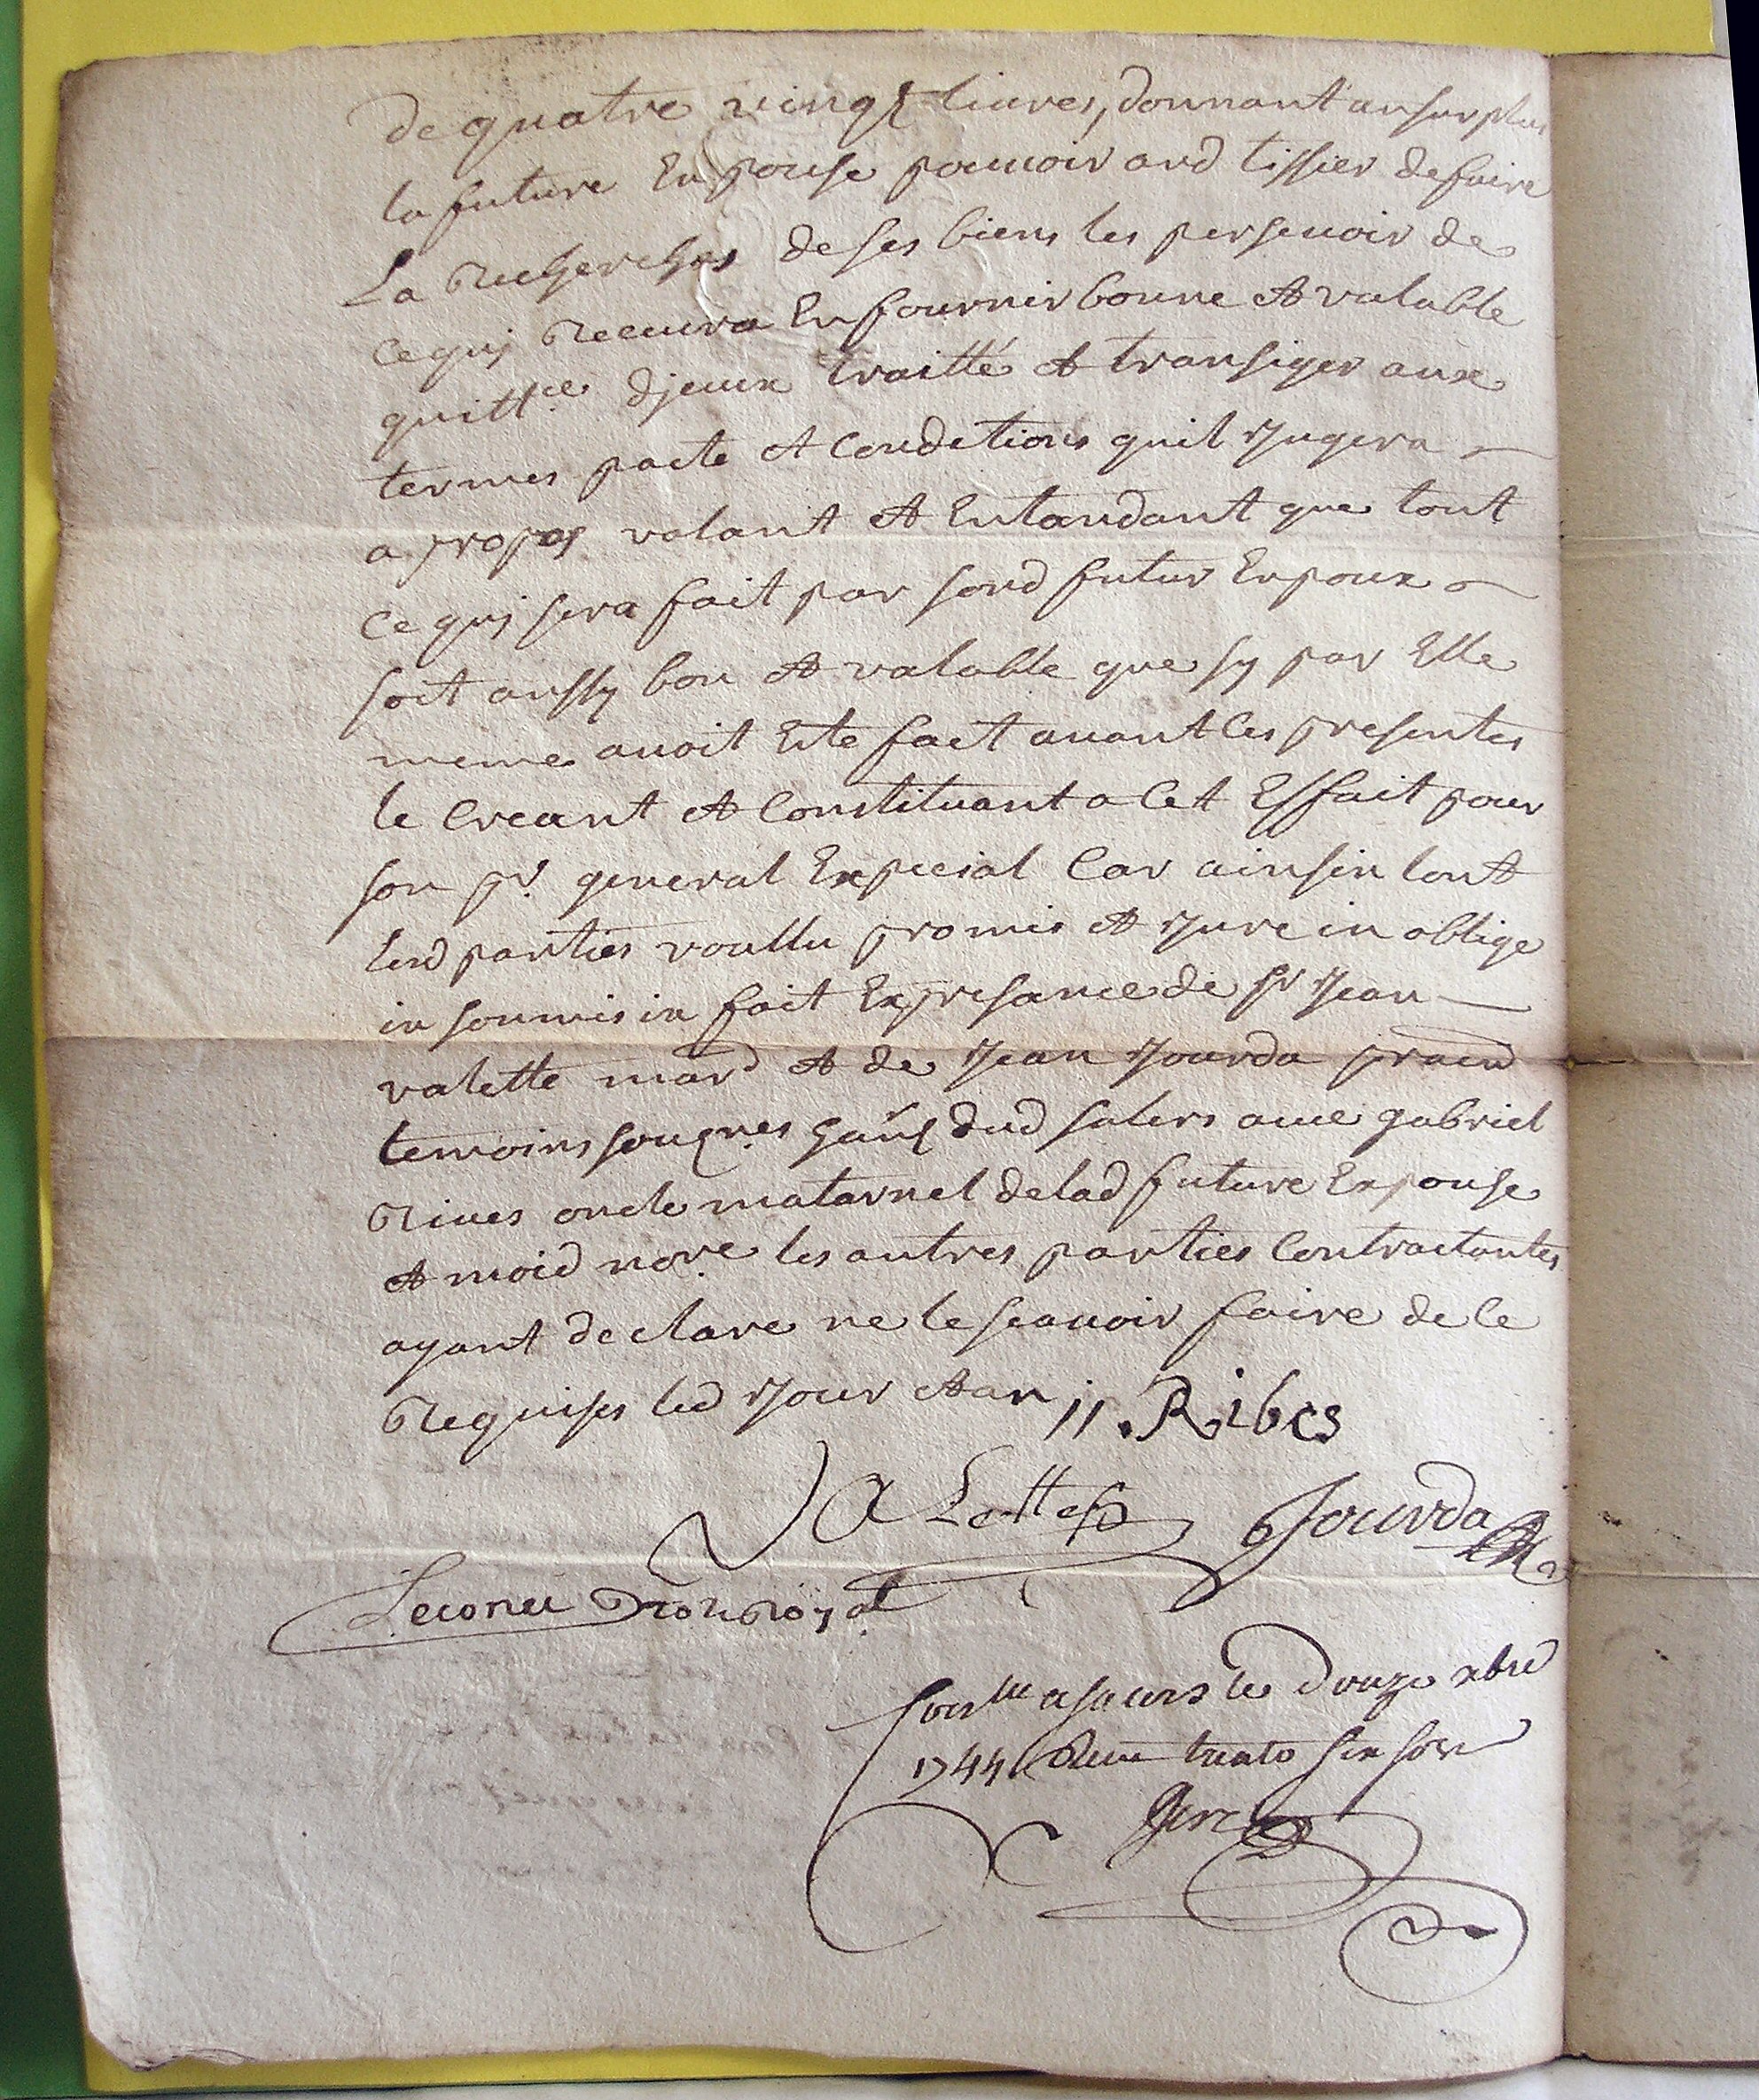 de quatre vingt livres, donnant ausurplus
la future Expouse pouuoir aud tissier defaire
La Recherches de ses biens les persevoir de
ce quj Recuvra En fournir bonne et valable
quittce djceux traitté et transiger aux
termes pacte et Condetions quil Jugera
a propos volant et Entandant que tout
ce quj sera fait par sond futur Expoux
soit aussy bon et valable que sy par Elle
meme avoit Este fait avant les presentes
le Creant et Constituant a Cet Effait pour
son pr general Expecial Car ainsin lont
lesd parties voullu promis et Jure in oblige
in soumis in fait Expresance de sr Jean
valette mard et de Jean Jourda pracn
temoins sougnes habs dud salers avec gabriel
Rives oncle maternel delad future Expouse
et moid nore les autres parties Contractantes
ayant declare ne le scauoir faire de le
Requises led Jour et an JJ. Ribes
VaLette Jourda
Leconet Nore Royal
Conlle a salers le Douze xbre
1744 Reçu trente six sols